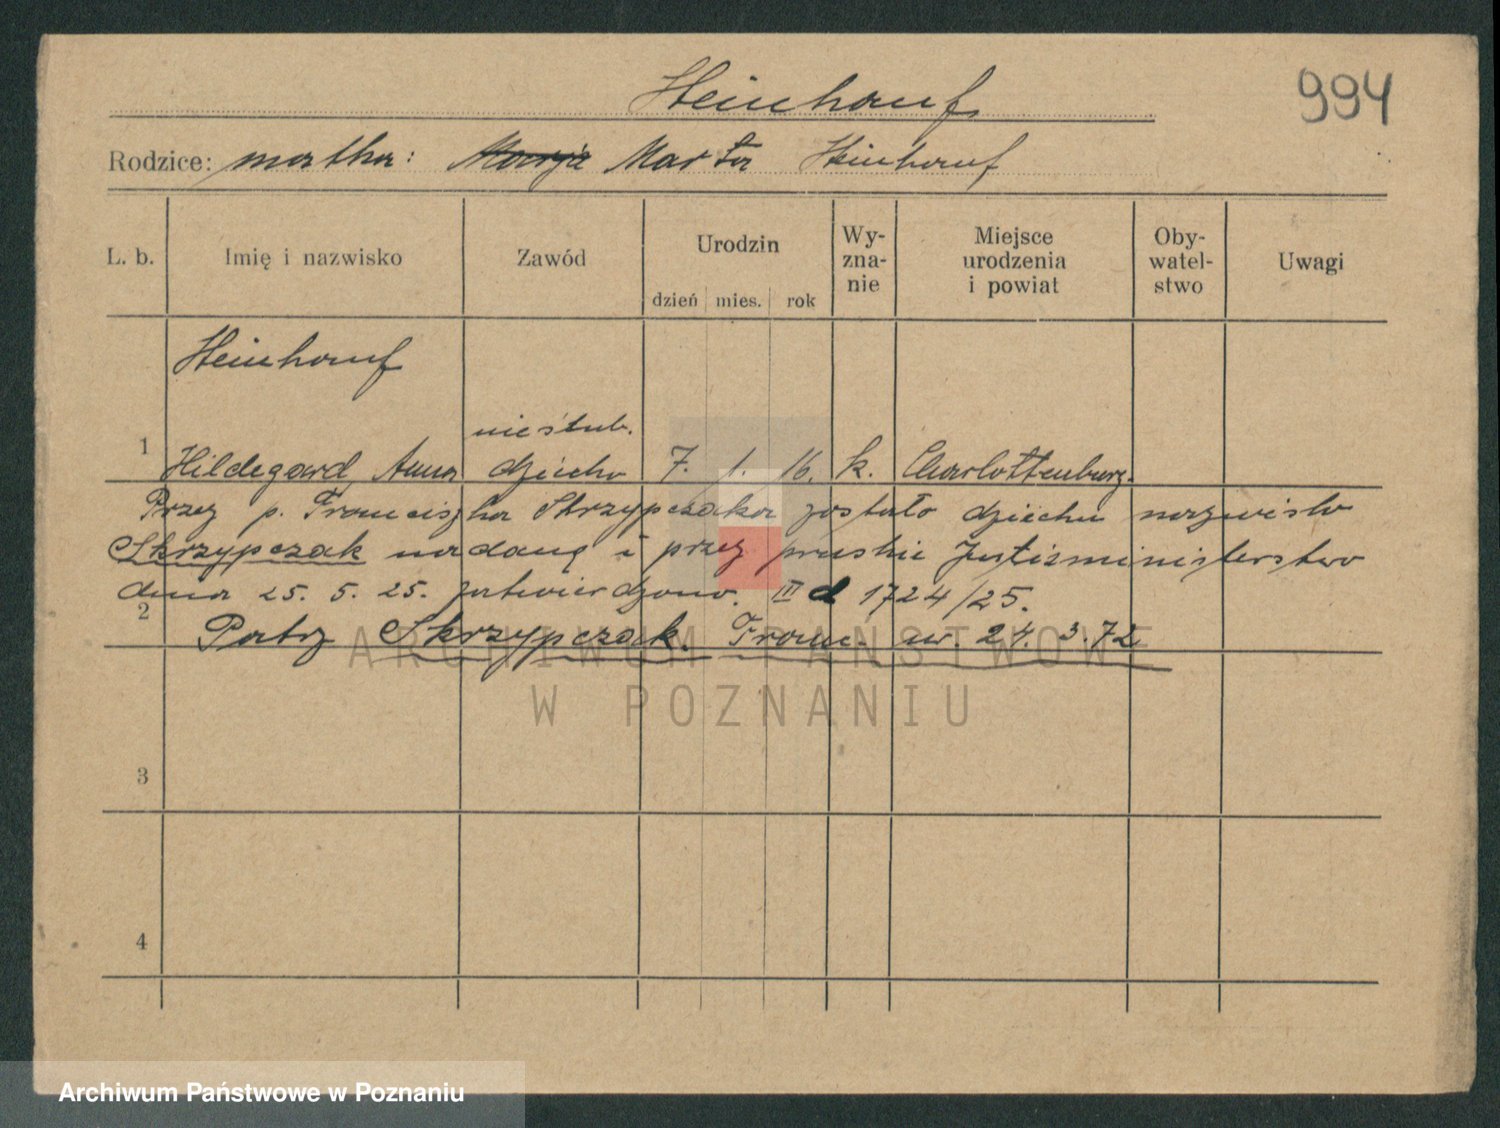 994
Heinhauf
Rodzice: matka: Marja Marta Heinhauf
L. b. Imię i nazwisko Zawód Urodzin dzień mies. rok Wy-zna-nie Miejsce urodzenia i powiat Oby-watel-stwo Uwagi
Heinhauf
nieślub.
1 Hildegard, Anna dziecko 7. 1. 16. k. Charlottenburg.
Przez p. Franciszka Skrzypczaka zostało dziecku nazwisko
Skrzypczak nadane i przez pruskie Justizministerstwo
dnia 25. 5. 25. zatwierdzono. III d 1724/25.
2 Patrz Skrzypczak. Franc. ur. 24. 3. 72
3
4
ARCHIWUM PAŃSTWOWE
W POZNANIU
Archiwum Państwowe w Poznaniu